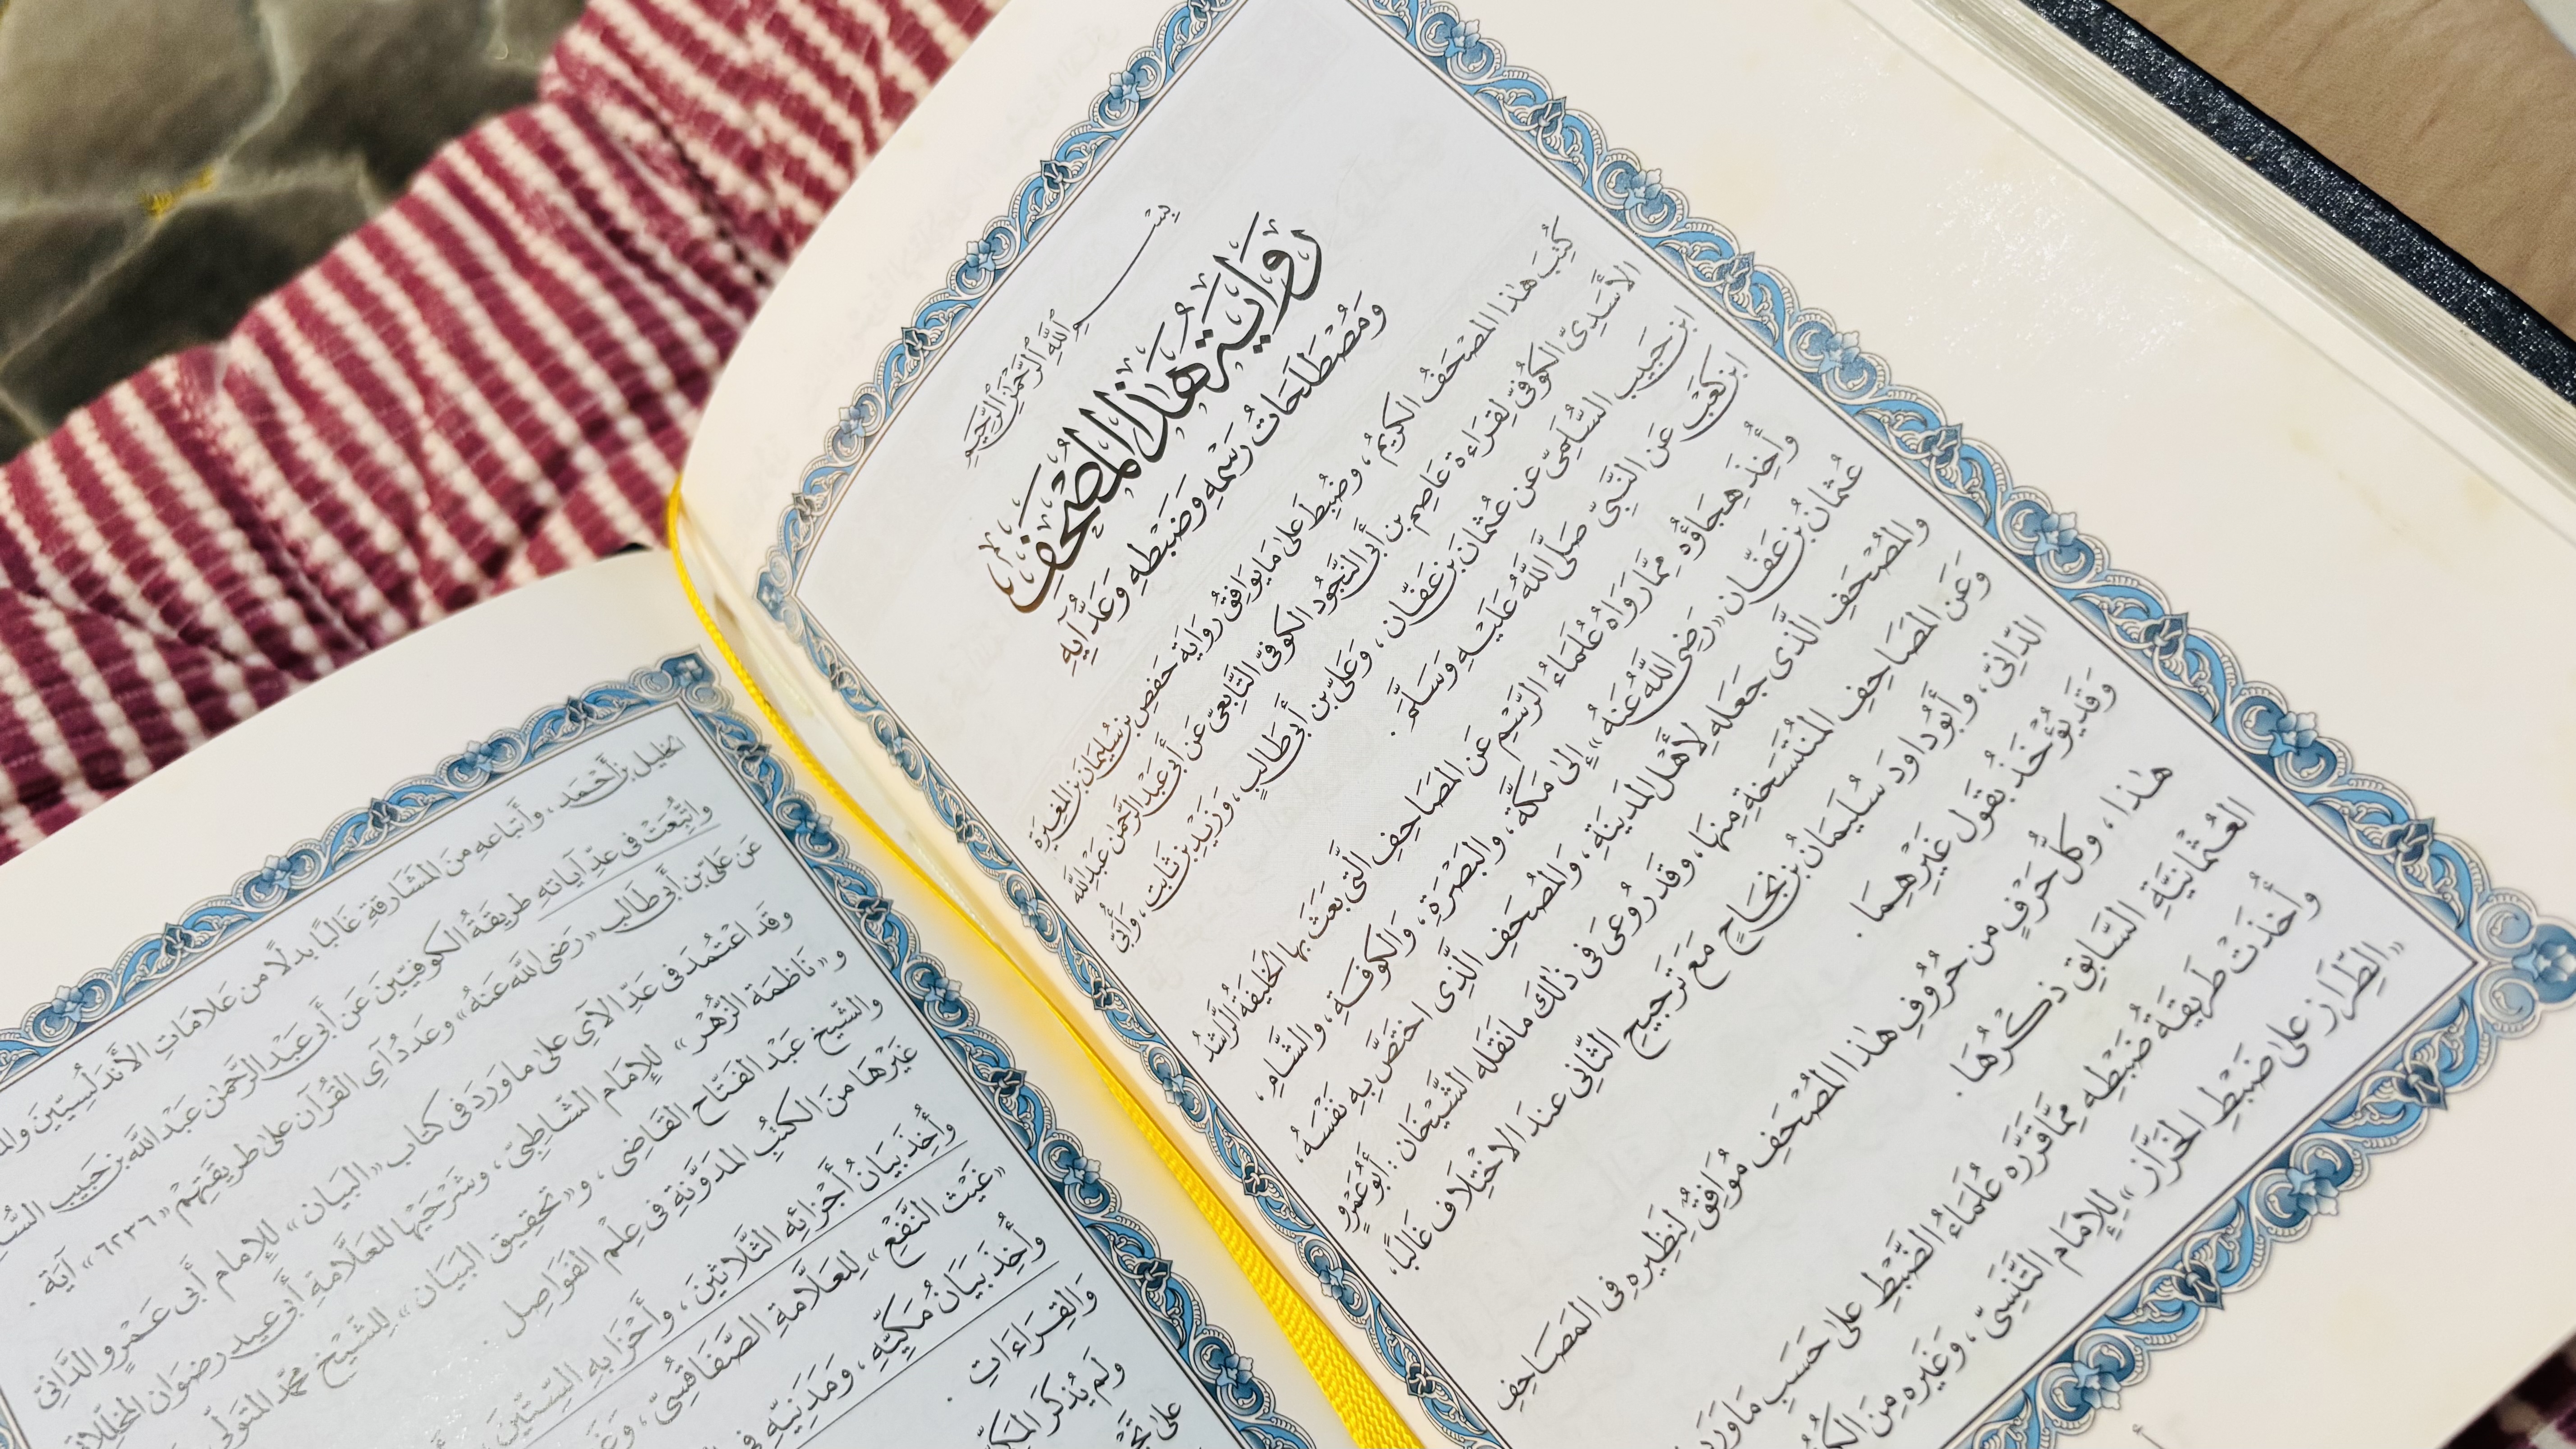 بِسْمِ اللَّهِ الرَّحْمَٰنِ الرَّحِيمِ
رِوَايَةُ هَٰذَا المُصْحَفِ
وَمُصْطَلَحَاتُ رَسْمِهِ وَضَبْطِهِ وَعَدِّ آيِهِ
كُتِبَ هٰذا المُصْحَفُ الكريمُ، وضُبِطَ عَلَىٰ مَا يُوَافِقُ رِوَايَةَ حَفْصِ بنِ سُلَيْمَانَ بنِ المُغِيرَةِ
الأَسَدِىِّ الكُوفِىِّ لِقِرَاءَةِ عَاصِمِ بنِ أَبِى النَّجُودِ الكُوفِىِّ التَّابِعِىِّ عَن أَبِى عَبْدِ الرَّحْمٰنِ عَبْدِ اللَّهِ
ابنِ حَبِيبٍ السُّلَمِىِّ عَن عُثْمَانَ بنِ عَفَّان، وَعَلِىِّ بنِ أَبِى طَالِبٍ، وَزَيْدِ بنِ ثَابِت، وَأُبَىِّ
ابنِ كَعْبٍ عَن النَّبِىِّ صَلَّى اللَّهُ عَلَيْهِ وَسَلَّمَ.
وأُخِذَ هِجَاؤُه مِمَّا رَوَاهُ عُلَمَاءُ الرَّسْمِ عَنِ المَصَاحِفِ الَّتِى بَعَثَ بِهَا الخَلِيفَةُ الرَّاشِدُ
عُثْمَانُ بنُ عَفَّان «رَضِىَ اللَّهُ عَنْهُ» إِلَىٰ مَكَّةَ، والبَصْرَةِ، وَالكُوفَةِ، والشَّامِ،
والمُصْحَفِ الَّذِى جَعَلَه لِأَهْلِ المَدِينَةِ، وَالمُصْحَفِ الَّذِى اخْتَصَّ بِهِ نَفْسَهُ،
وَعَنِ المَصَاحِفِ المُنْتَسَخَةِ مِنْهَا، وقَد رُوعِىَ فى ذٰلِكَ مانَقَلَه الشَّيْخَان: أَبُو عَمْرٍو
الدَّانِىّ، وأَبُو دَاودَ سُلَيمَانُ بنُ نجَاحٍ مَعَ تَرجِيحِ الثَّانِى عندَ الاخْتِلَاف غَالبًا،
وَقَد يُؤْخَذُ بِقَول غَيْرِهِمَا.
هٰذَا، وكلُّ حَرْفٍ من حُرُوفِ هٰذا المُصْحَفِ مُوَافِقٌ لِنَظِيرِهِ فى المَصَاحِفِ
العُثْمَانِيَّةِ السَّابِقِ ذكْرُهَا.
وأُخِذَتْ طَرِيقَةُ ضَبْطِهِ مِمَّا قَرَّرَه عُلَمَاءُ الضَّبْطِ عَلَىٰ حَسَبِ مَا وَرَدَ
«الطِّرَاز عَلَىٰ ضَبْطِ الخَرَّاز» لِلإمَام التَّنَسِىِّ، وَغَيْرِهِ مِنَ
الخَليل بنِ أَحْمَد، وأَتبَاعِهِ مِنَ المَشَارقةِ غَالبًا بدلًا من عَلامَاتِ الأَنْدَلُسِيِّينَ
واتُّبِعَتْ فى عَدِّ آياتهِ طريقةُ الكوفيِّينَ عَن أَبى عَبْد الرَّحْمٰنِ عَبْد اللَّه بنِ حَبِيبٍ
عَن عَلىِّ بنِ أَبى طَالب «رَضى اللَّهُ عَنهُ» وعَددُ آى القُرآن على طريقَتِهِمْ «٦٢٣٦» آيَة.
وقَد اعْتُمدَ فى عَدِّ الآى عَلَىٰ ماوَرَدَ فى كتَاب «البَيَان» للإمام أَبى عَمْرٍو الدَّانِىّ
و«نَاظمَة الزُّهْر» للإمَام الشَّاطِبِىّ، وشَرْحَيْهَا للعَلَّامَةِ أَبى عِيد رضوَان المخَلِّلاتى
والشَّيخ عَبْد الفَتَّاح القَاضِى، و«تحقيق البَيَان» للشَّيْخ محمَّد المتوَلِّى
غَيْرِهَا مِنَ الكتُبِ المُدَوَّنَةِ فى عِلْمِ الفَوَاصِلِ.
وأُخِذَ بيَانُ أَجْزَائِه الثَّلَاثينَ، وأَحْزَابِهِ السِّتِّينَ
«غَيْث النَّفْعِ» لِلعَلَّامَةِ الصَّفَاقُسِىِّ،
وأُخِذَ بيَانُ مَكِّيِّهِ، وَمَدَنِيِّهِ فى
وَالقِرَاءَاتِ.
ولَم يُذكَر
عَلَىٰ